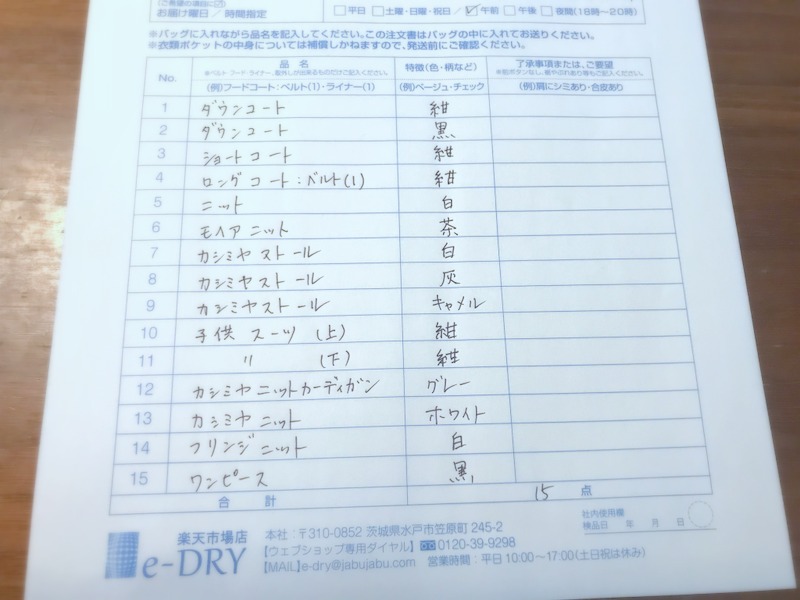 お届け曜日／時間指定 □平日 □土曜・日曜・祝日／☑午前 □午後 □夜間(18時〜20時)
※バッグに入れながら品名を記入してください。この注文書はバッグの中に入れてお送りください。
※衣類ポケットの中身については補償しかねますので、発送前にご確認ください。
No. 品名 特徴(色・柄など) 了承事項または、ご要望
(例)フードコート：ベルト(1)・ライナー(1) (例)ベージュ・チェック (例)肩にシミあり・合皮あり
1 ダウンコート 紺
2 ダウンコート 黒
3 ショートコート 紺
4 ロングコート：ベルト(1) 紺
5 ニット 白
6 モヘアニット 茶
7 カシミヤストール 白
8 カシミヤストール 灰
9 カシミヤストール キャメル
10 子供 スーツ (上) 紺
11 〃 (下) 紺
12 カシミヤニットカーディガン グレー
13 カシミヤニット ホワイト
14 フリンジニット 白
15 ワンピース 黒
合計 15 点
楽天市場店
e-DRY
本社：〒310-0852 茨城県水戸市笠原町245-2
【ウェブショップ専用ダイヤル】 0120-39-9298
【MAIL】e-dry@jabujabu.com 営業時間：平日10:00〜17:00(土日祝は休み)
社内使用欄
検品日 年 月 日